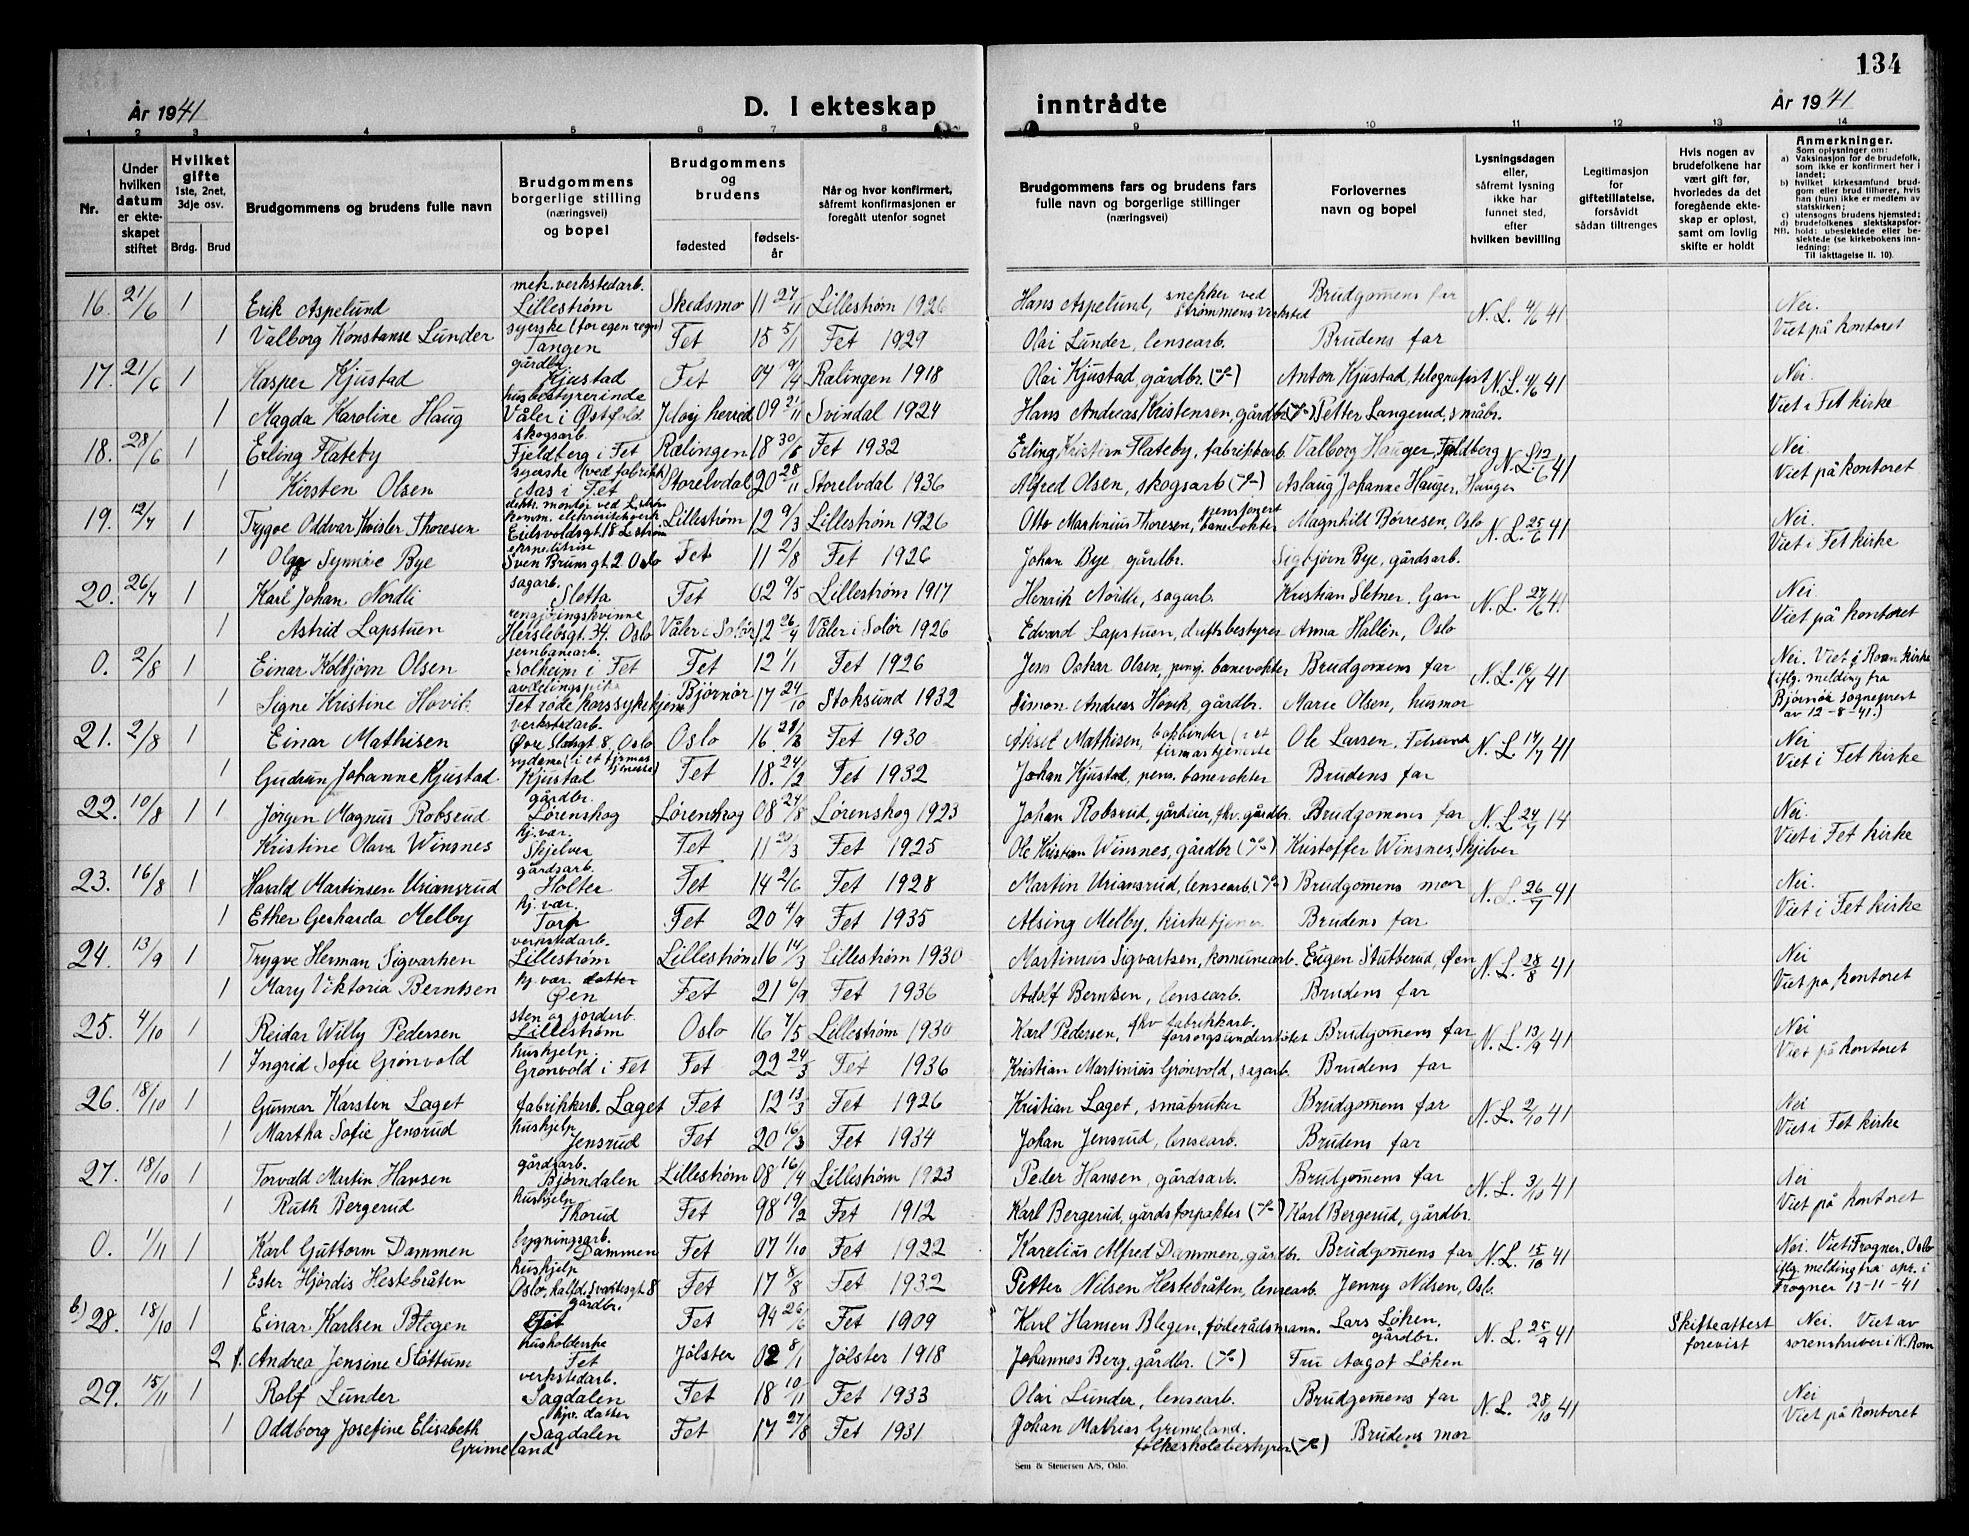 134
År 1941 D. I ekteskap inntrådte År 1941
1 2 3 4 5 6 7 8 9 10 11 12 13 14
Nr.
Under hvilken datum er ekteskapet stiftet
Hvilket gifte 1ste, 2net, 3dje osv.
Brdg. Brud
Brudgommens og brudens fulle navn
Brudgommens borgerlige stilling (næringsvei) og bopel
Brudgommens og brudens
fødested fødselsår
Når og hvor konfirmert, såfremt konfirmasjonen er foregått utenfor sognet
Brudgommens fars og brudens fars fulle navn og borgerlige stillinger (næringsvei)
Forlovernes navn og bopel
Lysningsdagen eller, såfremt lysning ikke har funnet sted, efter hvilken bevilling
Legitimasjon for giftetillatelse, forsåvidt sådan tiltrenges
Hvis nogen av brudefolkene har vært gift før, hvorledes da det foregående ekteskap er opløst, samt om lovlig skifte er holdt
Anmerkninger.
Som oplysninger om:
a) Vaksinasjon for de brudefolk, som ikke er konfirmert her i landet;
b) hvilket kirkesamfund brudgom eller brud tilhører, hvis han (hun) ikke er medlem av statskirken;
c) utensogns brudens hjemsted;
d) brudefolkenes slektskapsforhold: ubeslektede eller beslektede (se kirkebokens innledning;
NB. Til iakttagelse II. 10).
16. 21/6 1 Erik Aspelund mek. verkstedarb. Lillestrøm Skedsmo 11 27/11 Lillestrøm 1926 Hans Aspelund, snekker ved Strømmens verksted Brudgomens far N. L. 4/6 41 Nei.
1 Valborg Konstanse Lunder syerske (for egen regn) Tangen Fet 15 5/1 Fet 1929 Olai Lunder, lensearb. Brudens far Viet på kontoret
17. 21/6 1 Kasper Kjustad gårdbr. Kjustad Fet 04 9/4 Rælingen 1918 Olai Kjustad, gårdbr. Anton Kjustad, telegrafist N. L. 4/6 41 Nei.
1 Magda Karoline Haug husbestyrerinde Våler i Østfold Jeløy herred 09 21/11 Svindal 1924 Hans Andreas Kristensen, gårdbr. Petter Langerud, småbr. Viet i Fet kirke
18. 28/6 1 Erling Flateby skogsarb. Fjeldberg i Fet Rælingen 18 30/5 Fet 1932 Erling Kristian Flateby, fabrikkarb. Valborg Hauger, Fjeldberg N. L. 12/6 41 Nei
1 Kirsten Olsen syerske (ved fabrikk) Aas i Fet Storelvdal 20 28/11 Storelvdal 1936 Alfred Olsen, skogsarb Aslaug Johanne Hauger, Hauger Viet på kontoret
19. 12/7 1 Trygve Oddvar Kvisler Thoresen elektr. montør ved L.strøm komm. elektrisitetsverk Eidsvoldsgt. 18 L.strøm Lillestrøm 12 9/3 Lillestrøm 1926 Otto Martinius Thoresen, pensjonert banevokter Magnhild Børresen, Oslo N. L. 25/6 41 Nei.
1 Olga Synnøve Bye ekspeditrise Sven Bruns gt. 2 Oslo Fet 11 2/8 Fet 1926 Johan Bye gårdbr. Sigbjørn Bye, gårdsarb. Viet i Fet kirke
20. 26/7 1 Karl Johan Nordli sagarb. Sletta Fet 02 9/5 Lillestrøm 1917 Henrik Nordli, sagarb. Kristian Sletner. Gan N. L. 27/6 41 Nei
1 Astrid Lapstuen rengjøringskvinne Herslebsgt. 34. Oslo Våler i Solør 12 26/4 Våler i Solør 1926 Edvard Lapstuen, driftsbestyrer Anna Hallén, Oslo Viet på kontoret
0. 2/8 1 Einar Kolbjørn Olsen jernbanearb. Solheim i Fet Fet 12 1/1 Fet 1926 Jens Oskar Olsen, pensj. banevokter Brudgomens far N. L. 16/7 41 Nei. Viet i Roan kirke
1 Signe Kristine Hovik avdelingspike Fet røde korssykehjem Bjørnør 17 24/10 Stoksund 1932 Simon Andreas Hovik, gårdbr. Marie Olsen, husmor (iflg. melding fra Bjørnør sogneprest av 12-8-41.)
21. 2/8 1 Einar Mathisen verkstedarb. Øvre Slottsgt. 8, Oslo Oslo 16. Fet 1930 Aksel Mathisen, bokbinder (i et firmas tjeneste Ole Larsen, Fetsund N. L. 14/7 41 Nei
1 Gudrun Johanne Kjustad sydame (i et firmas tjeneste) Kjustad Fet 18. 24/2 Fet 1932 Johan Kjustad, pens. banevokter Brudens far Viet i Fet kirke
22. 10/8 1 1 Jørgen Magnus Robsrud gårdbr. Lørenskog Lørenskog 08 27/8 Lørenskog 1923 Johan Robsrud, gårdeier, fhv. gårdbr. Brudgomens far N. L. 24/7 14 Nei
Kristine Olava Winsnes hj. vær. Skjelver Fet 11 Fet 1925 Ole Kristian Winsnes, gårdbr Kristoffer Winsnes, Skjelver Viet i Fet kirke
23. 16/8 1 Harald Martinsen Uriansrud gårdsarb. Holter Fet 14 2/6 Fet 1928 Martin Uriansrud, lensearb. Brudgomens mor N. L. 26/7 41 Nei.
1 Ether Gerharda Melby hj. vær. Torp Fet 20 4/9 Fet 1935 Alsing Melby, kirketjener Brudens far Viet i Fet kirke
24. 13/9 1 Trygve Herman Sigvartsen verkstedarb. Lillestrøm Lillestrøm 16 14/3 Lillestrøm 1930 Martinius Sigvartsen, komunearb. Eugen Stubberud, Øien N. L. 28/8 41 Nei
1 Mary Viktoria Berntsen hj. vær. datter Øen Fet 21 6/9 Fet 1936 Adolf Berntsen, lensearb. Brudens far Viet på kontoret
25. 4/10 1 Reidar Willy Pedersen sten og jordarb. Lillestrøm Oslo 16 7/5 Lillestrøm 1930 Karl Pedersen, fhv fabrikkarb. forsorgsunderstøttet Brudgomens far N. L. 13/9 41 Nei
1 Ingrid Sofie Grønvold hushjelp Grønvold i Fet Fet 22 24/3 Fet 1936 Kristian Martinius Grønvold, sagarb. Brudens far Viet på kontoret
26. 18/10 1 Gunnar Karsten Laget fabrikkarb. Laget Fet 12 13/3 Fet 1926 Kristian Laget, småbruker Brudgomens far N. L. 2/10 41 Nei
1 Martha Sofie Jensrud hushjelp Jensrud Fet 20 16/3 Fet 1934 Johan Jensrud, lensearb. Brudens far Viet i Fet kirke
27. 18/10 1 Torvald Martin Hansen gårdsarb. Bjørndalen Lillestrøm 08 16/4 Lillestrøm 1923 Peder Hansen, gårdsarb. Brudgomens far N. L. 3/10 41 Nei
1 Ruth Bergerud hushjelp Thorud Fet 98 19/2 Fet 1912 Karl Bergerud, gårdsforpakter Karl Bergerud, gårdbr. Viet på kontoret
0. 1/11 1 Karl Guttorm Dammen bygningsarb. Dammen Fet 07 1/10 Fet 1922 Karelius Alfred Dammen, gårdbr. Brudgomens far N. L. 15/10 41 Nei. Viet i Frogner, Oslo
1 Ester Hjördis Hestebråten hushjelp Oslo, halfd. Svartesgt. 8 Fet 17 8/8 Fet 1932 Petter Nilsen Hestebråten, lensearb. Jenny Nilsen, Oslo. iflg. melding fra spr. i Frogner 13-11-41
b) 28. 18/10 1 Einar Karlsen Blegen gårdbr. Fet Fet 94 26/6 Fet 1909 Karl Hansen Blegen, føderådsmann. Lars Löken, gårdbr. N. L. 25/9 41 Skifteattest forevist Nei. Viet av
2 f. Andrea Jensine Slöttum husholderske Fet Jølster 02 8/1 Jølster 1918 Johannes Berg, gårdbr. Fru Aagot Löken sorenskriver i N. Rom
29. 15/11 1 Rolf Lunder verkstedarb. Sagdalen Fet 18 10/11 Fet 1933 Olai Lunder, lensearb. Brudgomens far N. L. 28/10 41 Nei
1 Oddborg Josefine Elisabeth Grimeland hjv. datter Sagdalen Fet 17 27/8 Fet 1931 Johan Mathias Grimeland. folkeskolebestyrer Brudens mor Viet på kontoret
Sem & Stenersen A/S, Oslo.